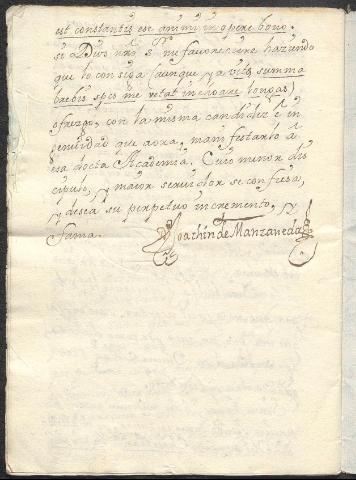 est constantis ese animi in opere bono.
si Dios nrõ Sr me favoreciere hazendo
que lo consiga (aunque, y a vitæ summa
brebis spes me vetat inchoare longas)
ofrezco, con la misma candidèz è in
genuidad que aora, manifestarlo â
esa docta Academia. Cuio menor dis
cipulo, y maior servidor se confiesa,
y desea su perpetuo incremento, y
fama.
Joachin de Manzaneda